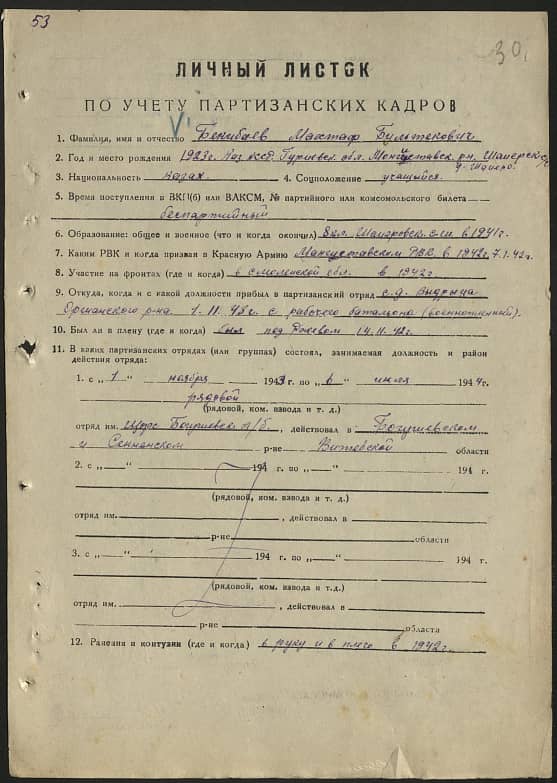 53
30.
ЛИЧНЫЙ ЛИСТОК
ПО УЧЕТУ ПАРТИЗАНСКИХ КАДРОВ
1. Фамилия, имя и отчество Бекибаев Махтаф
2. Год и место рождения 1923г. Каз. ССР Гурьевск. обл. рн.
3. Национальность казах 4. Соцположение учащийся
5. Время поступления в ВКП(б) или ВЛКСМ, № партийного или комсомольского билета
беспартийный
6. Образование: общее и военное (что и когда окончил) 8кл. в 1941г.
7. Каким РВК и когда призван в Красную Армию РВК в 1942г. 7.1.42г.
8. Участие на фронтах (где и когда) в Смоленской обл. в 1942г.
9. Откуда, когда и с какой должности прибыл в партизанский отряд с.д.
Оршанского р-на. 1.11.43г. с рабочего батальона (военнопленный).
10. Был ли в плену (где и когда) был под Ржевом 14.11.42г.
11. В каких партизанских отрядах (или группах) состоял, занимаемая должность и район
действия отряда:
1. с „1 " ноября 1943 г. по „6 " июля 1944 г.
рядовой
(рядовой, ком. взвода и т. д.)
отряд им. Щорс Богушевск. п/б , действовал в Богушевском
и Сенненском р-не Витебской области
2. с „ " 194 г. по „ " 194 г.
(рядовой, ком. взвода и т. д.)
отряд им. , действовал в
р-не области
3. с „ " 194 г. по „ " 194 г.
(рядовой, ком. взвода и т.д.)
отряд им. , действовал в
р-не области
12. Ранения и контузии (где и когда) в руку и в плечо в 1942г.